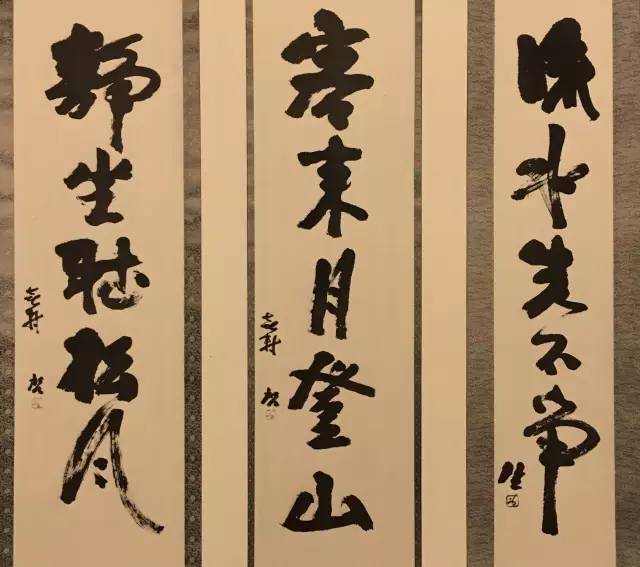 水先不争
客来月登山
静坐聴松风